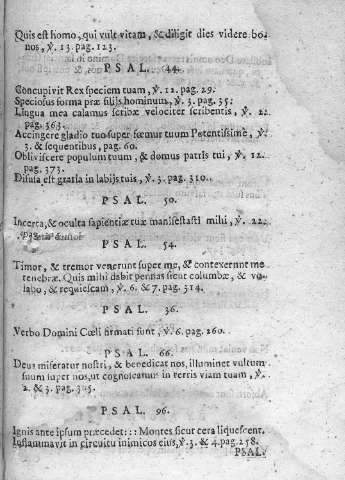 Quis est homo, qui vult vitam, & diligit dies videre bo-
nos, ℣. 13. pag. 123.
PSAL. 44.
Concupivit Rex speciem tuam, ℣. 12. pag. 29.
Speciosus forma præ filijs hominum, ℣. 3. pag. 35:
Lingua mea calamus scribæ velociter scribentis, ℣. 22
pag. 363.
Accingere gladio tuo super fœmur tuum Potentissime, ℣.
3. & sequentibus, pag. 60.
Obliviscere populum tuum, & domus patris tui, ℣. 12.
pag. 373.
Difusa est gratia in labijs tuis, ℣. 3. pag. 310.
PSAL. 50.
Incerta, & oculta sapientiæ tuæ manifestasti mihi, ℣. 22.
pag.
PSAL. 54.
Timor, & tremor venerunt super me, & contexerunt me
tenebræ. Quis mihi dabit pennas sicut columbæ, & vo-
labo, & requiescam, ℣. 6. & 7. pag. 314.
PSAL. 36.
Verbo Domini Cœli firmati sunt, ℣. 6. pag. 260.
PSAL. 66.
Deus misereatur nostri, & benedicat nos, illuminet vultum
suum super nos, ut cognoscamus in terris viam tuam, ℣.
2. & 3. pag.
PSAL. 96.
Ignis ante ipsum præcedet::: Montes sicut cera liquescent.
Inflammavit in circuitu inimicos eius, ℣. 3. & 4. pag. 258.
PSAL.